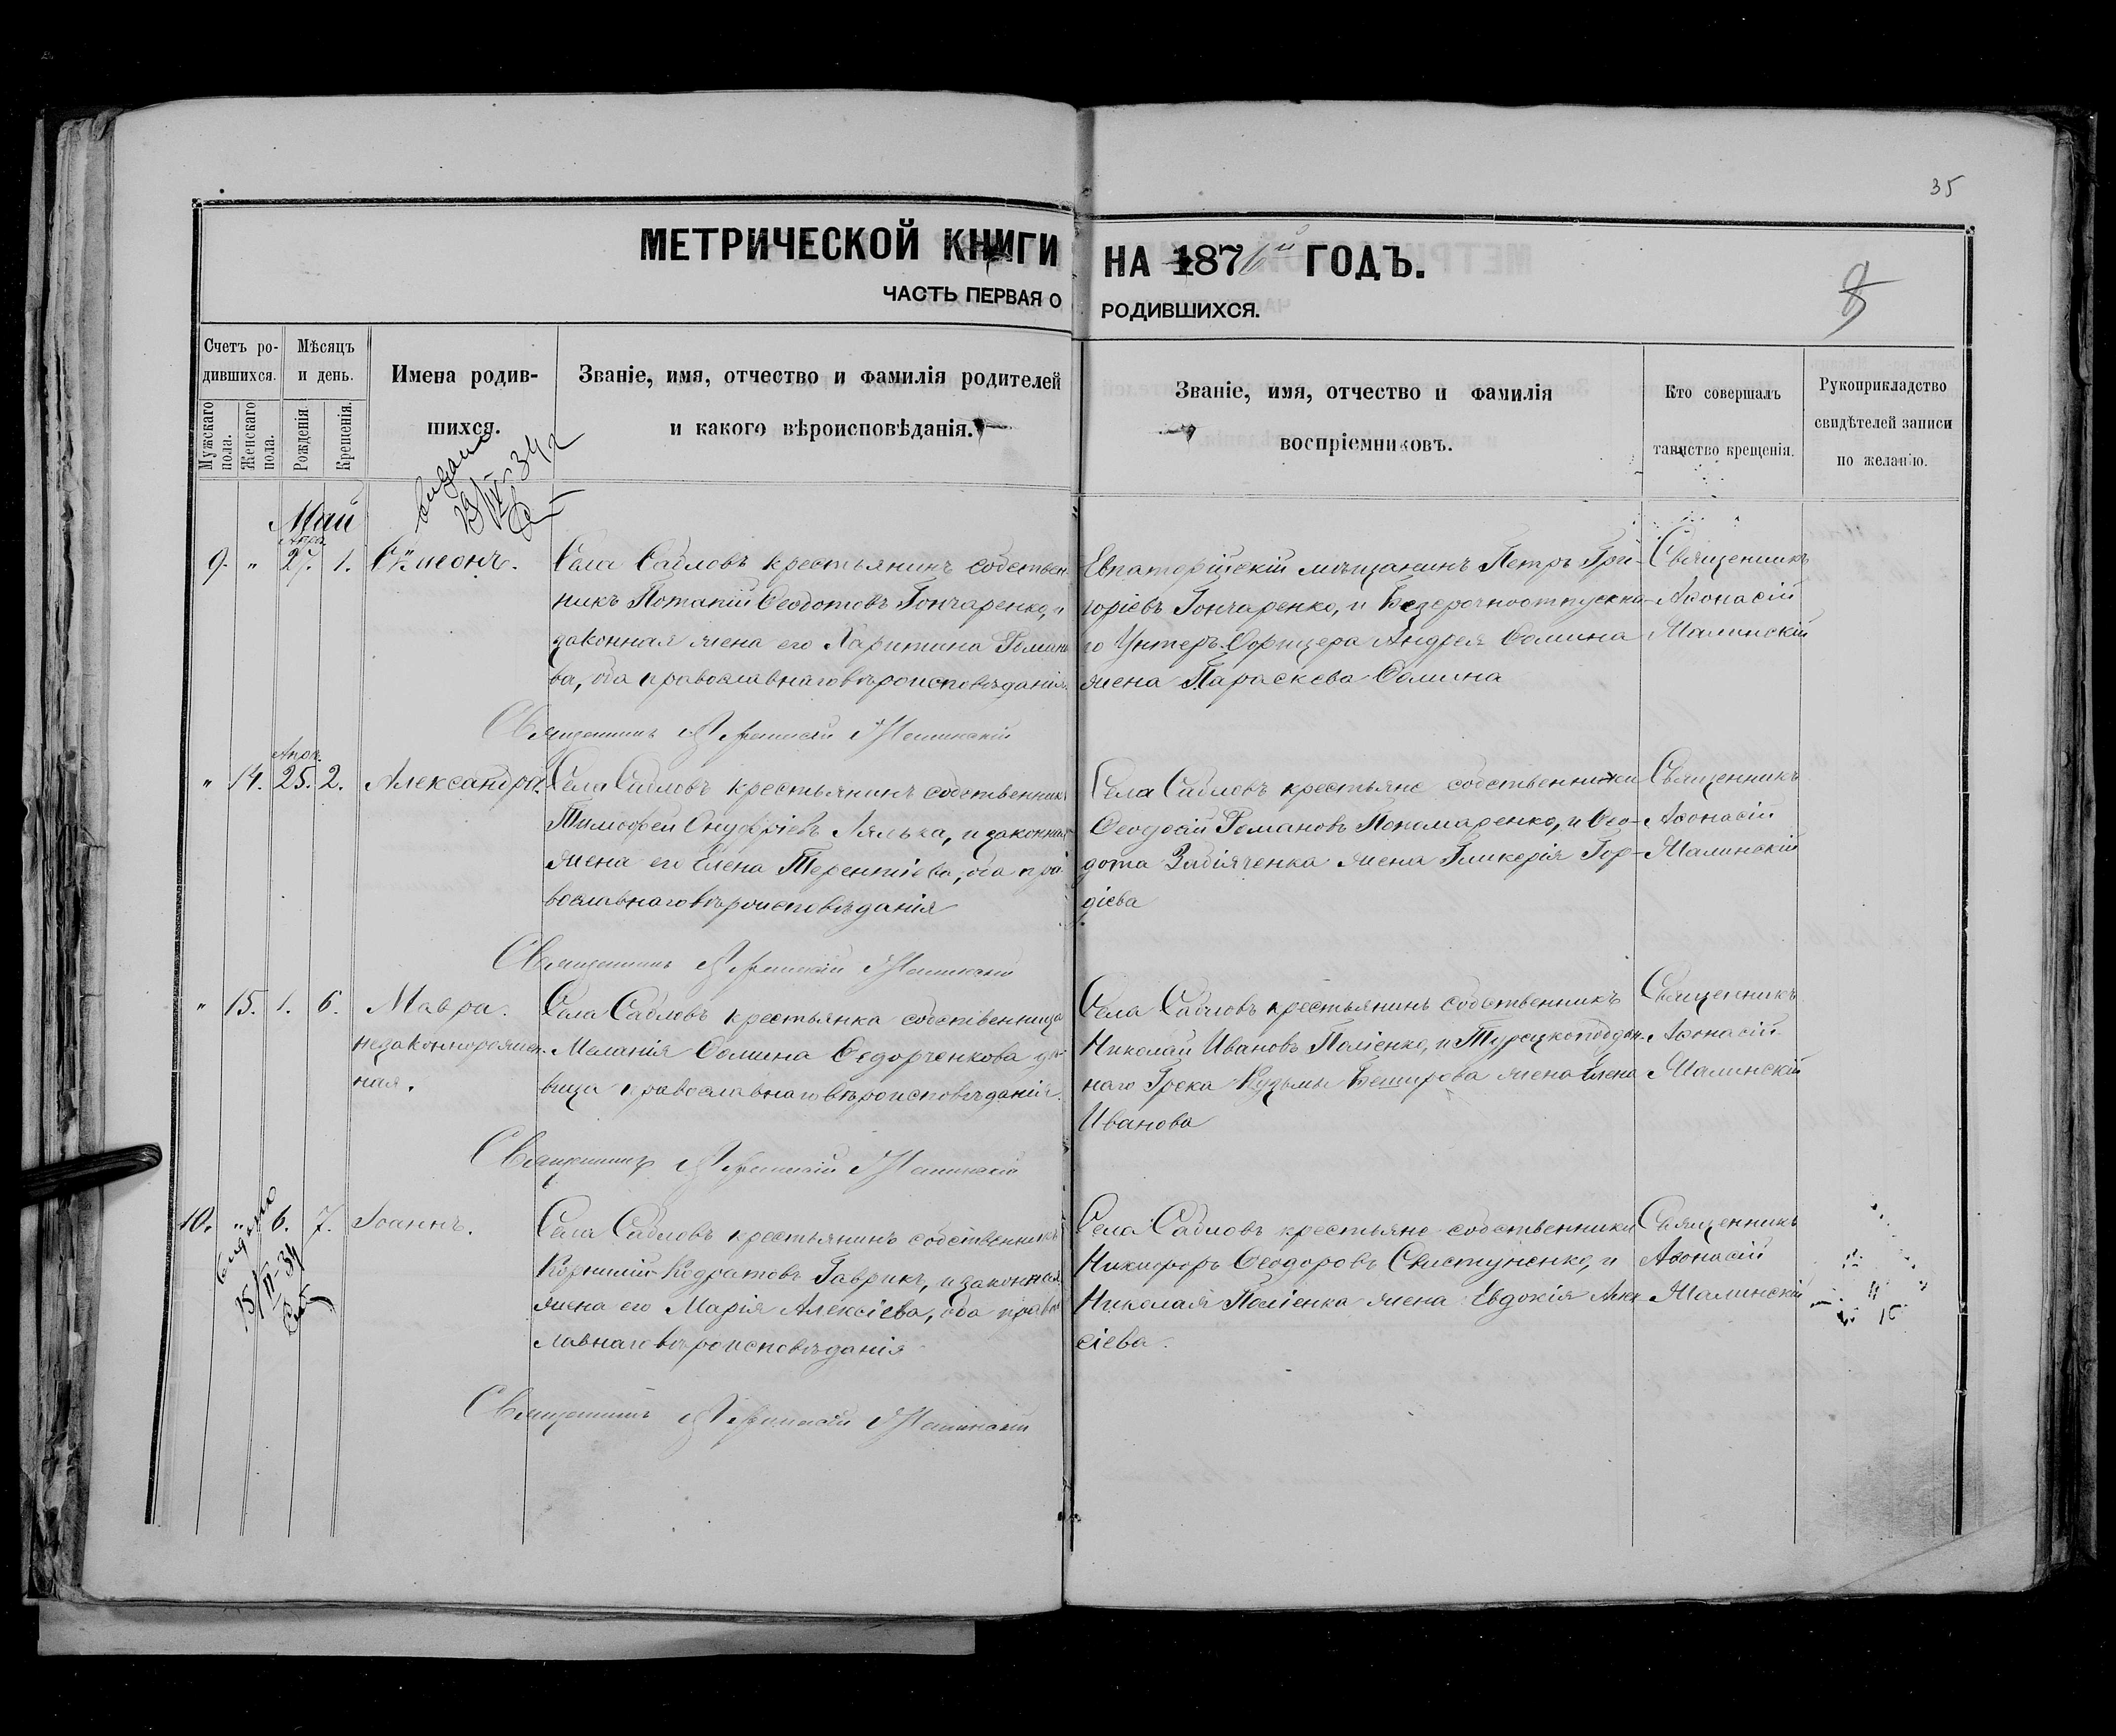 35
МЕТРИЧЕСКОЙ КНИГИ НА 1876й ГОДЪ.
ЧАСТЬ ПЕРВАЯ О РОДИВШИХСЯ.
8
Счетъ ро-
дившихся.
Мужскаго пола.
Женскаго пола.
Мѣсяцъ
и день.
Рожденія.
Крещенія.
Имена родив-
шихся.
Званіе, имя, отчество и фамилія родителей
и какого вѣроисповѣданія.
Званіе, имя, отчество и фамилія
воспріемниковъ.
Кто совершалъ
таинство крещенія.
Рукоприкладство
свидѣтелей записи
по желанію.
выдано
Май
Апр.
9. " 27. 1. Сѵмеонъ.
Села Сабловъ крестьянинъ собствен
никъ Потапій Ѳеодотовъ Гончаренко, и
законная жена его Харитина Романо
ва, оба православнаго вѣроисповѣданія.
Евпаторійскій мѣщанинъ Петръ Гри-
горіевъ Гончаренко, и Безсрочноотпускна-
го Унтеръ-Офицера Андрея Ѳомина
жена Параскева Ѳомина
Священникъ
Аѳонасій
Малинскій
Священникъ Аѳонасій Малинскій
Апр.
" 14. 25. 2. Александра.
Села Сабловъ крестьянинъ собственникъ
Тимоѳей Онуфріевъ Лялька, и законная
жена его Елена Терентіева, оба пра
вославнаго вѣроисповѣданія
Села Сабловъ крестьяне собственники
Ѳеодосій Романовъ Пономаренко, и Ѳео-
дота Забіяченка жена Гликерія Гор-
дієва
Священникъ
Аѳонасій
Малинскій
Священникъ Аѳонасій Малинскій
" 15. 1. 6. Мавра.
незаконнорожден-
ная.
Села Сабловъ крестьянка собственница
Меланія Ѳомина Ѳедорченкова дѣ-
вица православнаго вѣроисповѣданія.
Села Сабловъ крестьянинъ собственникъ
Николай Ивановъ Поліенко, и Турецкоподдан-
наго Грека Кузьмы Беширова жена Елена
Иванова
Священникъ
Аѳонасій
Малинскій
Священникъ Аѳонасій Малинскій
10. " 6. 7. Іоаннъ.
выдано
Села Сабловъ крестьянинъ собственникъ
Корнилій Кодратовъ Гаврикъ, и законная
жена его Марія Алексіева, оба правос
лавнаго вѣроисповѣданія
Села Сабловъ крестьяне собственники
Никифоръ Ѳеодоровъ Свистуненко, и
Николая Поліенка жена Евдокія Алек
сіева.
Священникъ
Аѳонасій
Малинскій
Священникъ Аѳонасій Малинскій